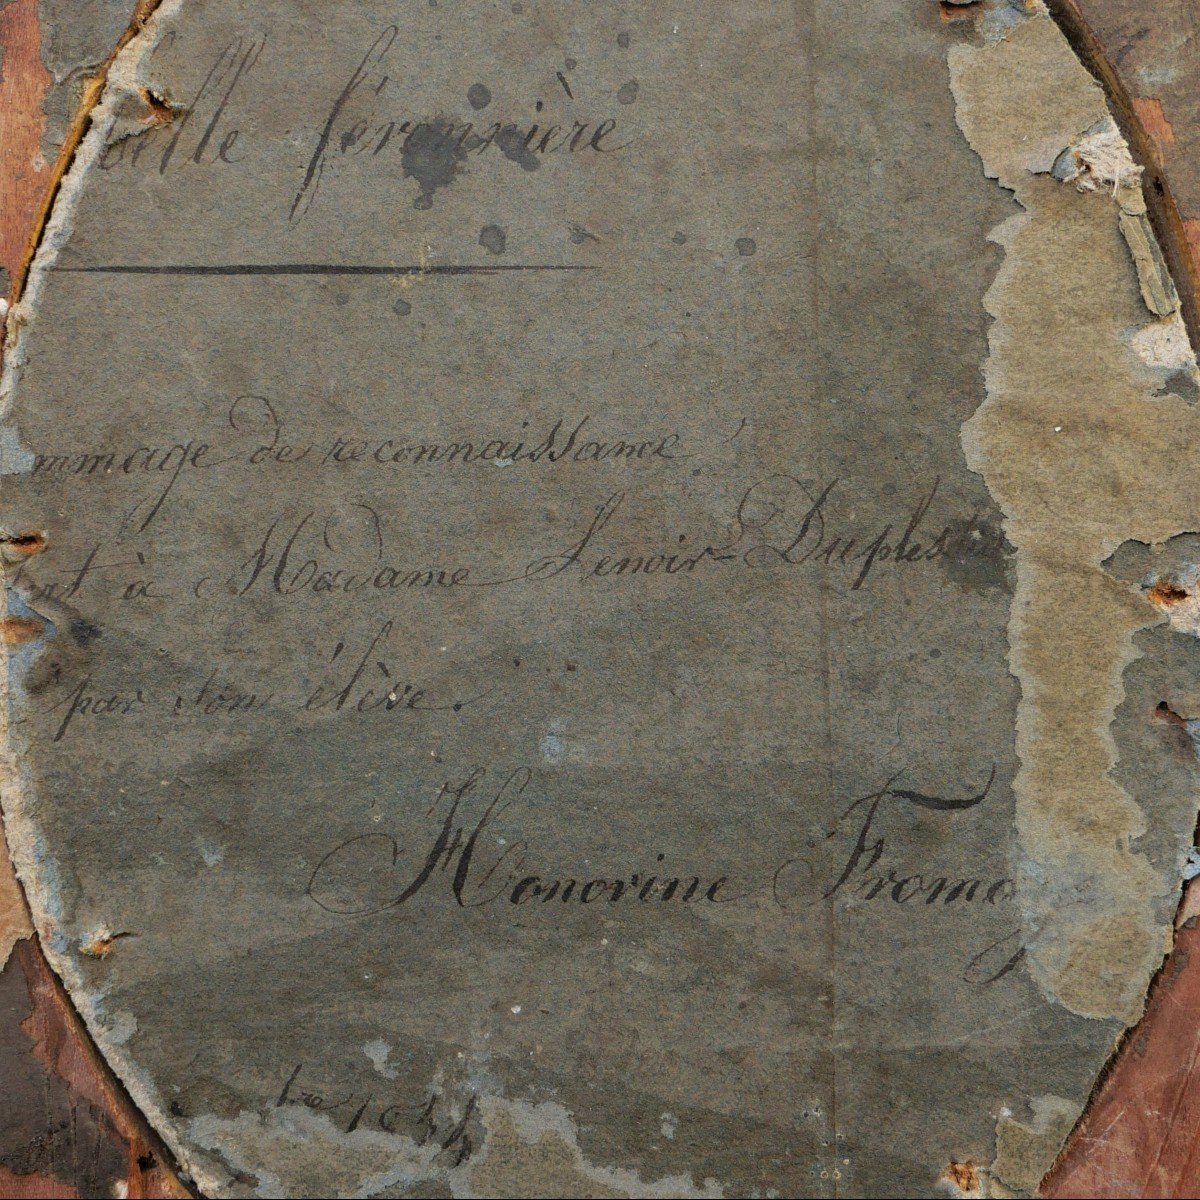 belle féronnière
mmage de reconnaissance
à Madame Lenoir-Duplessis
par son élève.
Honorine Fromag